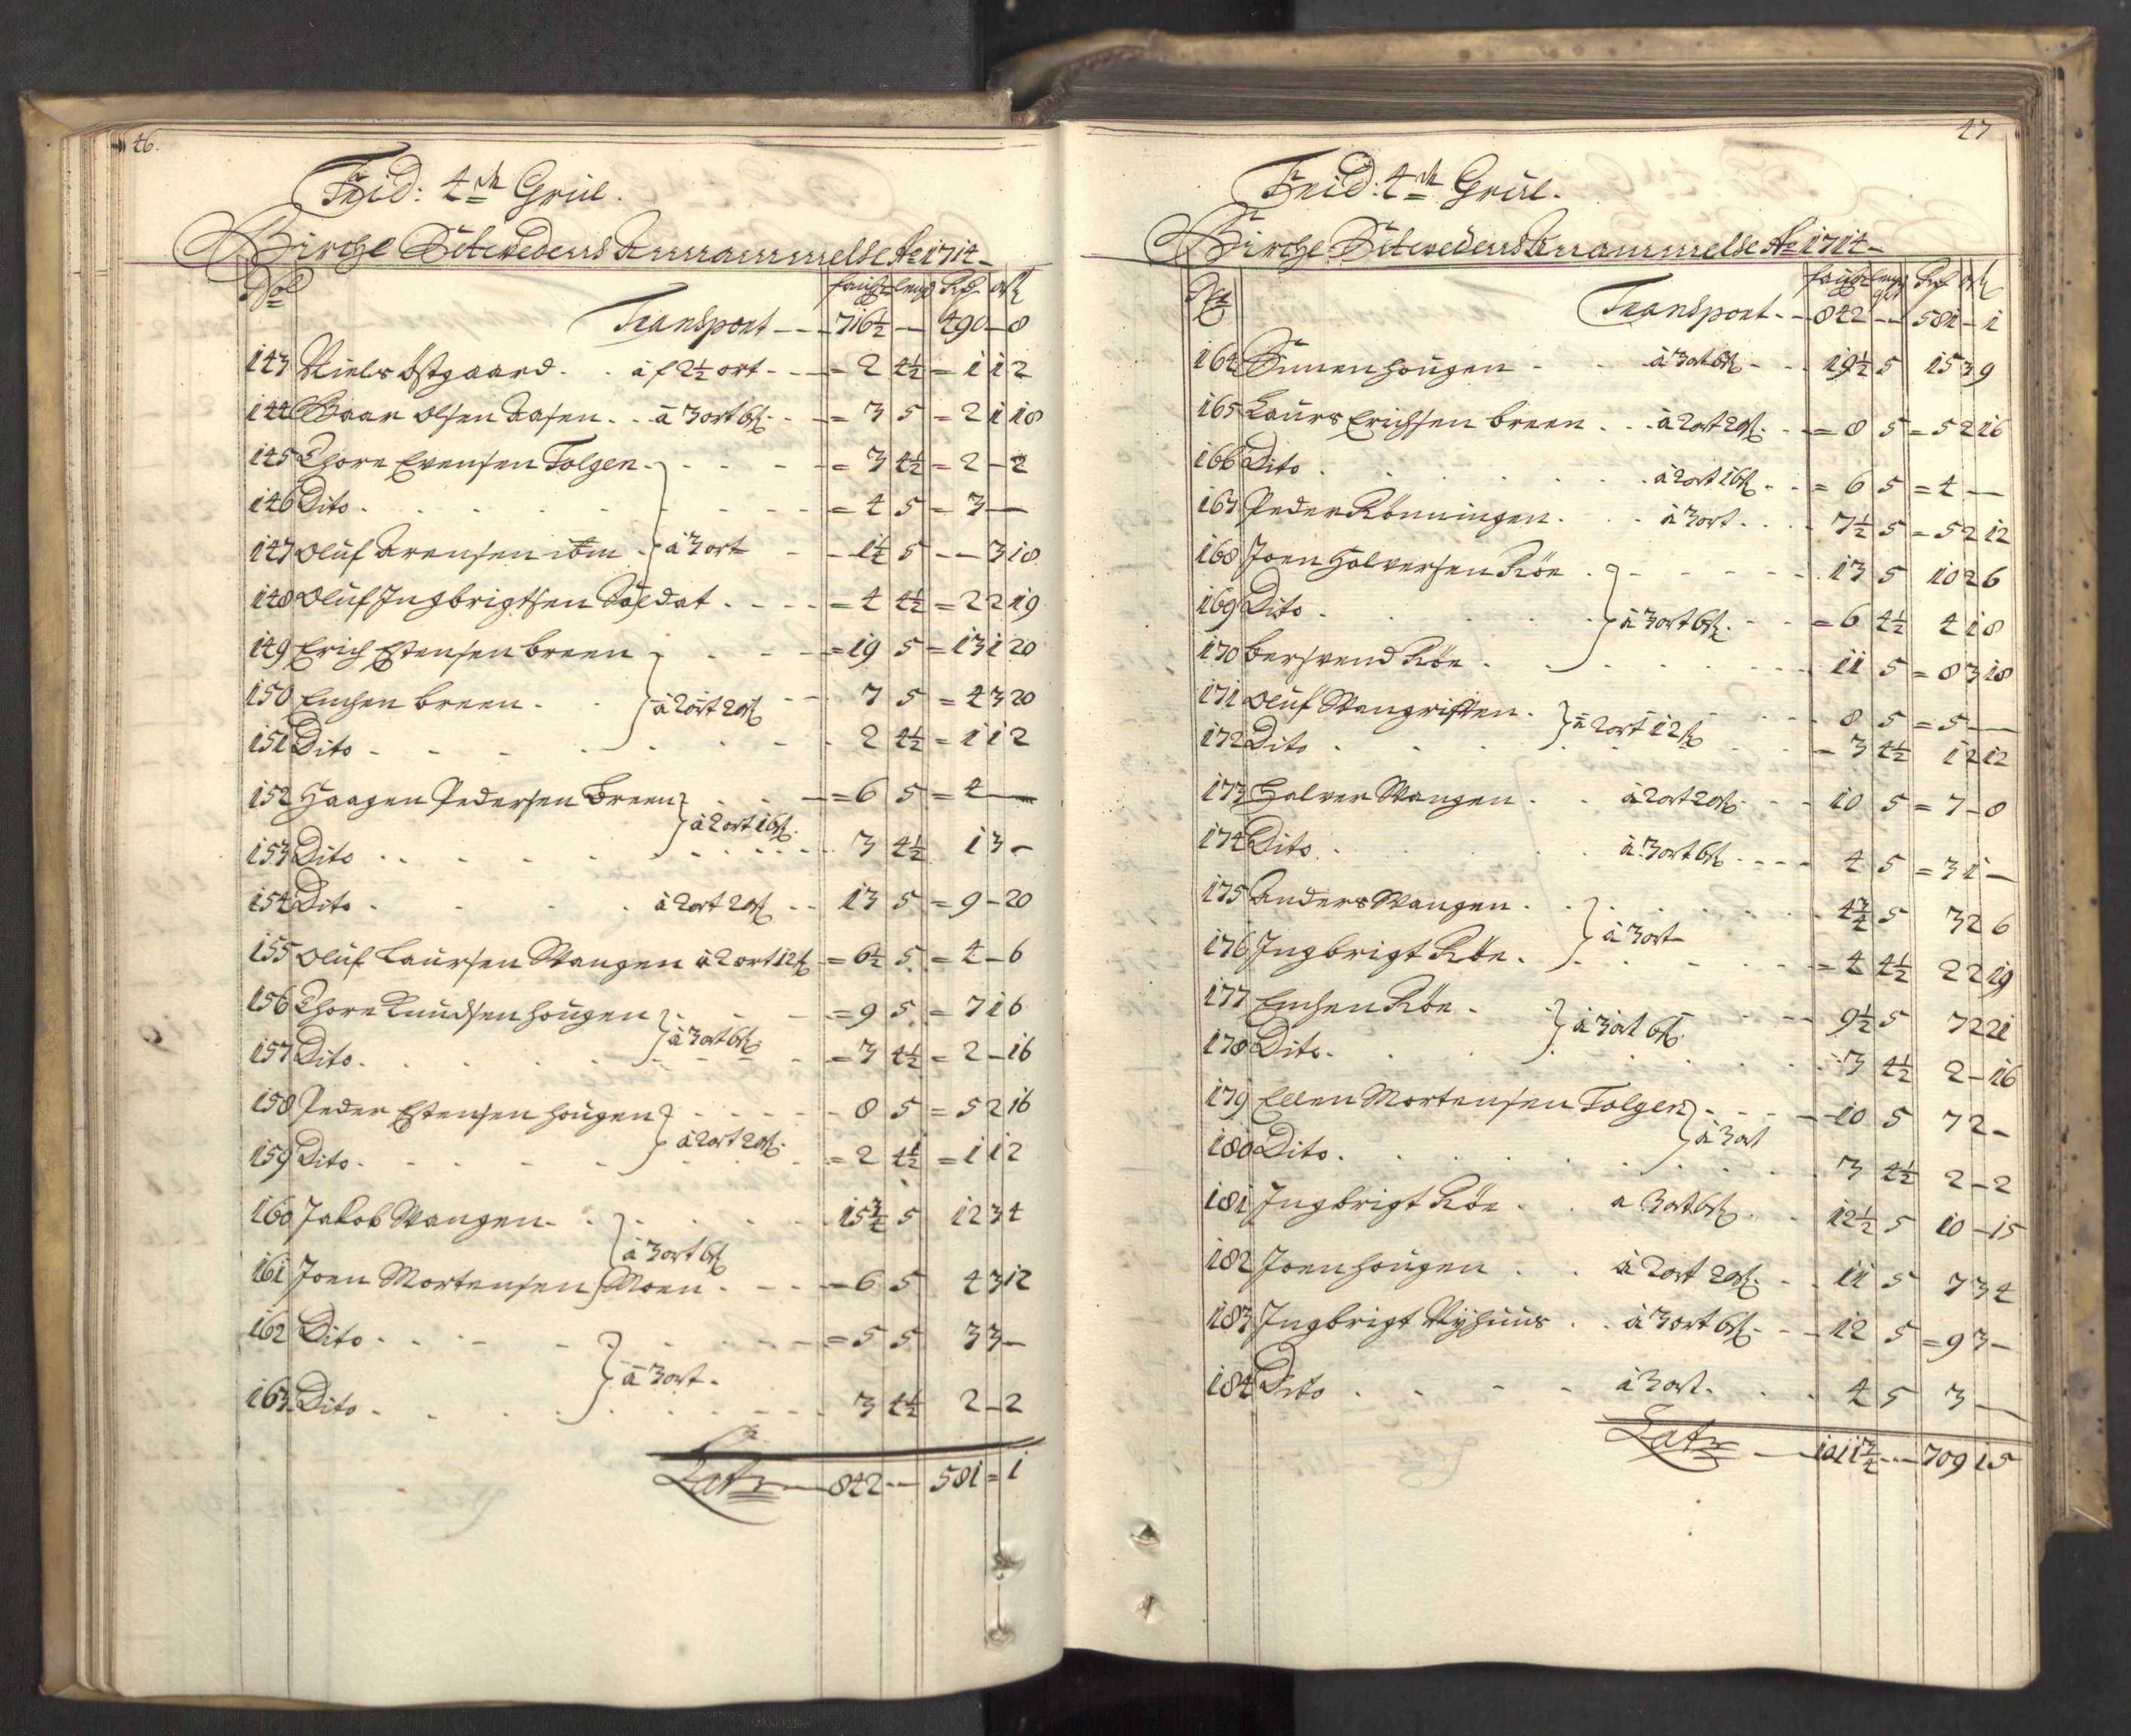 46.
Frid: 4de Grül.
Birche Setwedens Annammelse Ao 1714
No faugn lengd Rdr ort ß
Transport 716½ — 490 – 8
143 Niels Østgaard. . à f 2½ ort - - = 2 4½ = 1 1 2
144 Baar Olsen Aasen. . à 3 ort 6ß - - = 3 5 = 2 1 18
145 Thore Evensen Tolgen - - = 3 4½ = 2 – 2
146 Dito - - = 4 5 = 3 —
147 Oluf Arensen ibm à 3 ort - - 1¼ 5 — 3 18
148 Oluf Ingbrigtsen Soldat - - = 4 4½ = 2 2 19
149 Erich Estensen breen - - = 19 5 = 13 1 20
150 Enchen breen - - à 2 ort 20ß - - 7 5 = 4 3 20
151 Dito - - 2 4½ = 1 1 2
152 Haagen Pedersen breen - - = 6 5 = 4 —
à 2 ort 16ß
153 Dito - - 3 4½ 1 3 –
154 Dito - - à 2 ort 20ß - - 13 5 = 9 – 20
155 Oluf Laursen Wangen à 2 ort 12ß = 6½ 5 = 4 – 6
156 Thore Knudsen hougen - - = 9 5 = 7 1 6
à 3 ort 6ß
157 Dito - - = 3 4½ = 2 – 16
158 Peder Estensen hougen - - 8 5 = 5 2 16
à 2 ort 20ß
159 Dito - - = 2 4½ = 1 1 2
160 Jakob Wangen - - 15¾ 5 12 3 4
à 3 ort 6ß
161 Joen Mortensen Moen - - = 6 5 4 3 12
162 Dito - - = 5 5 3 3 –
à 3 ort
163 Dito - - 3 4½ 2 – 2
Latr — 842 — 581 = 1
47
Frid: 4de Grül.
Birche Setwedens Annammelse Ao 1714
No faugn lengd Rdr ort ß
Transport - - 842 — 581 – 1
164 Simen hougen - - à 3 ort 6ß - - 19½ 5 15 3 9
165 Laurs Erichsen breen - - à 2 ort 20ß - - = 8 5 = 5 2 16
166 Dito - - à 2 ort 16ß - - = 6 5 = 4 —
167 Peder Rönningen - - à 3 ort - - 7½ 5 = 5 2 12
168 Joen Halversen Röe - - 13 5 10 2 6
169 Dito - - à 3 ort 6ß - - = 6 4½ 4 1 8
170 bersvend Röe - - 11 5 = 8 3 18
171 Oluf Wangristen - - 8 5 = 5 —
à 2 ort 12ß
172 Dito - - = 3 4½ 1 2 12
173 Halver Wangen - - à 2 ort 20ß - - 10 5 = 7 – 8
174 Dito - - à 3 ort 6ß - - 4 5 = 3 1 –
175 Anders Wangen - - 4¾ 5 3 2 6
à 3 ort
176 Ingbrigt Röe - - = 4 4½ 2 2 19
177 Enchen Röe - - 9½ 5 7 2 21
à 3 ort 6ß
178 Dito - - 3 4½ 2 – 16
179 Ellen Mortensen Tolgen - - 10 5 7 2 –
à 3 ort
180 Dito - - 3 4½ 2 – 2
181 Ingbrigt Röe - - à 3 ort 6ß - - 12½ 5 10 – 15
182 Joen hougen - - à 2 ort 20ß - - 11 5 7 3 4
183 Ingbrigt Nyhuus - - à 3 ort 6ß - - 12 5 = 9 3 –
184 Dito - - à 3 ort - - 4 5 3 —
Latr — 1011¾ — 709 1 5